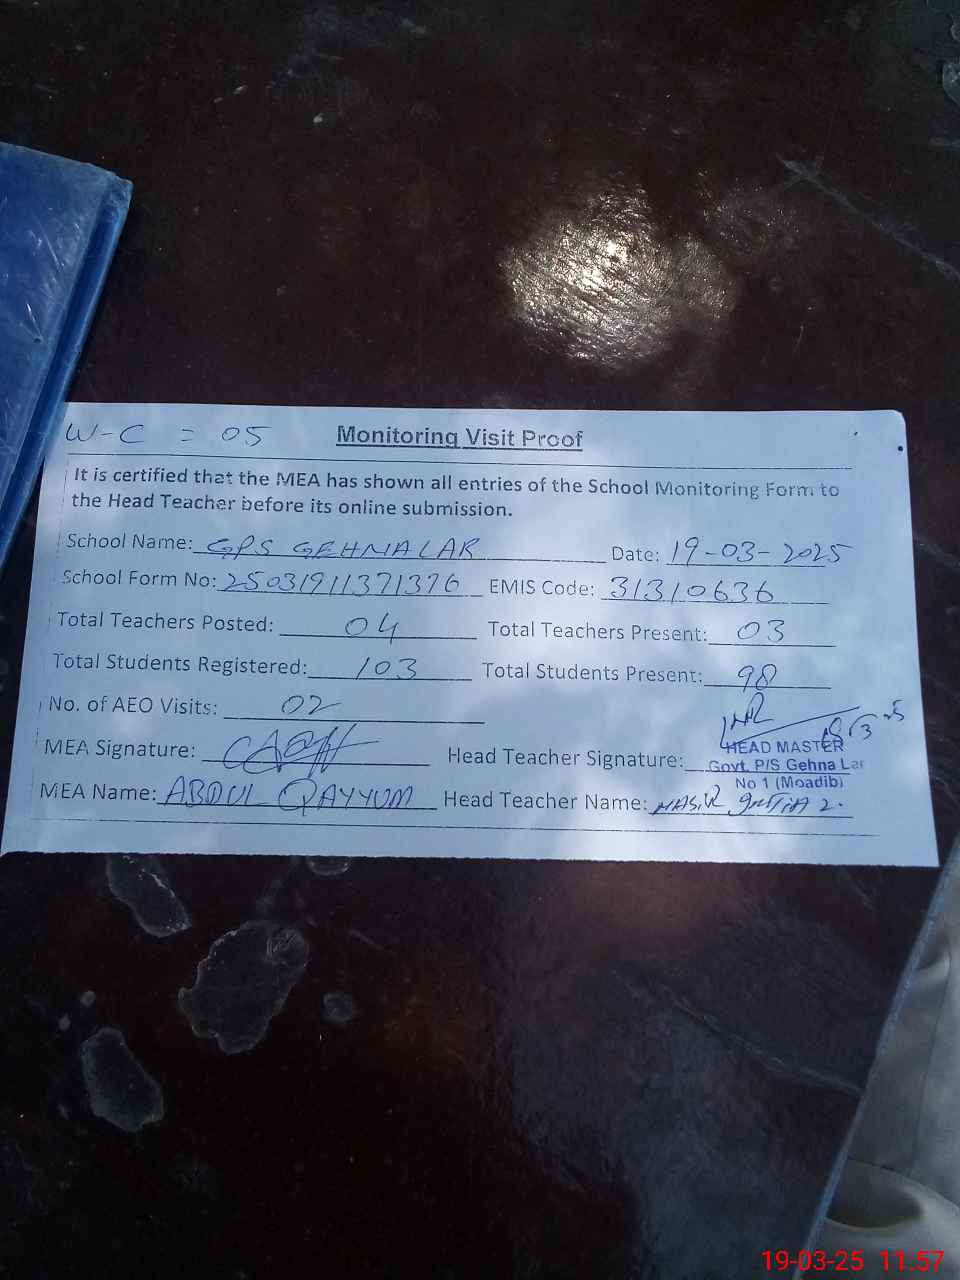 W-C = 05 Monitoring Visit Proof
It is certified that the MEA has shown all entries of the School Monitoring Form to
the Head Teacher before its online submission.
School Name: GPS GEHNALAR Date: 19-03-2025
School Form No: 25031911371376 EMIS Code: 31310636
Total Teachers Posted: 04 Total Teachers Present: 03
Total Students Registered: 103 Total Students Present: 98
No. of AEO Visits: 02
MEA Signature: Head Teacher Signature:
HEAD MASTER
Govt. P/S Gehna Lar
No 1 (Moadib)
MEA Name: ABDUL QAYYUM Head Teacher Name:
19-03-25 11:57